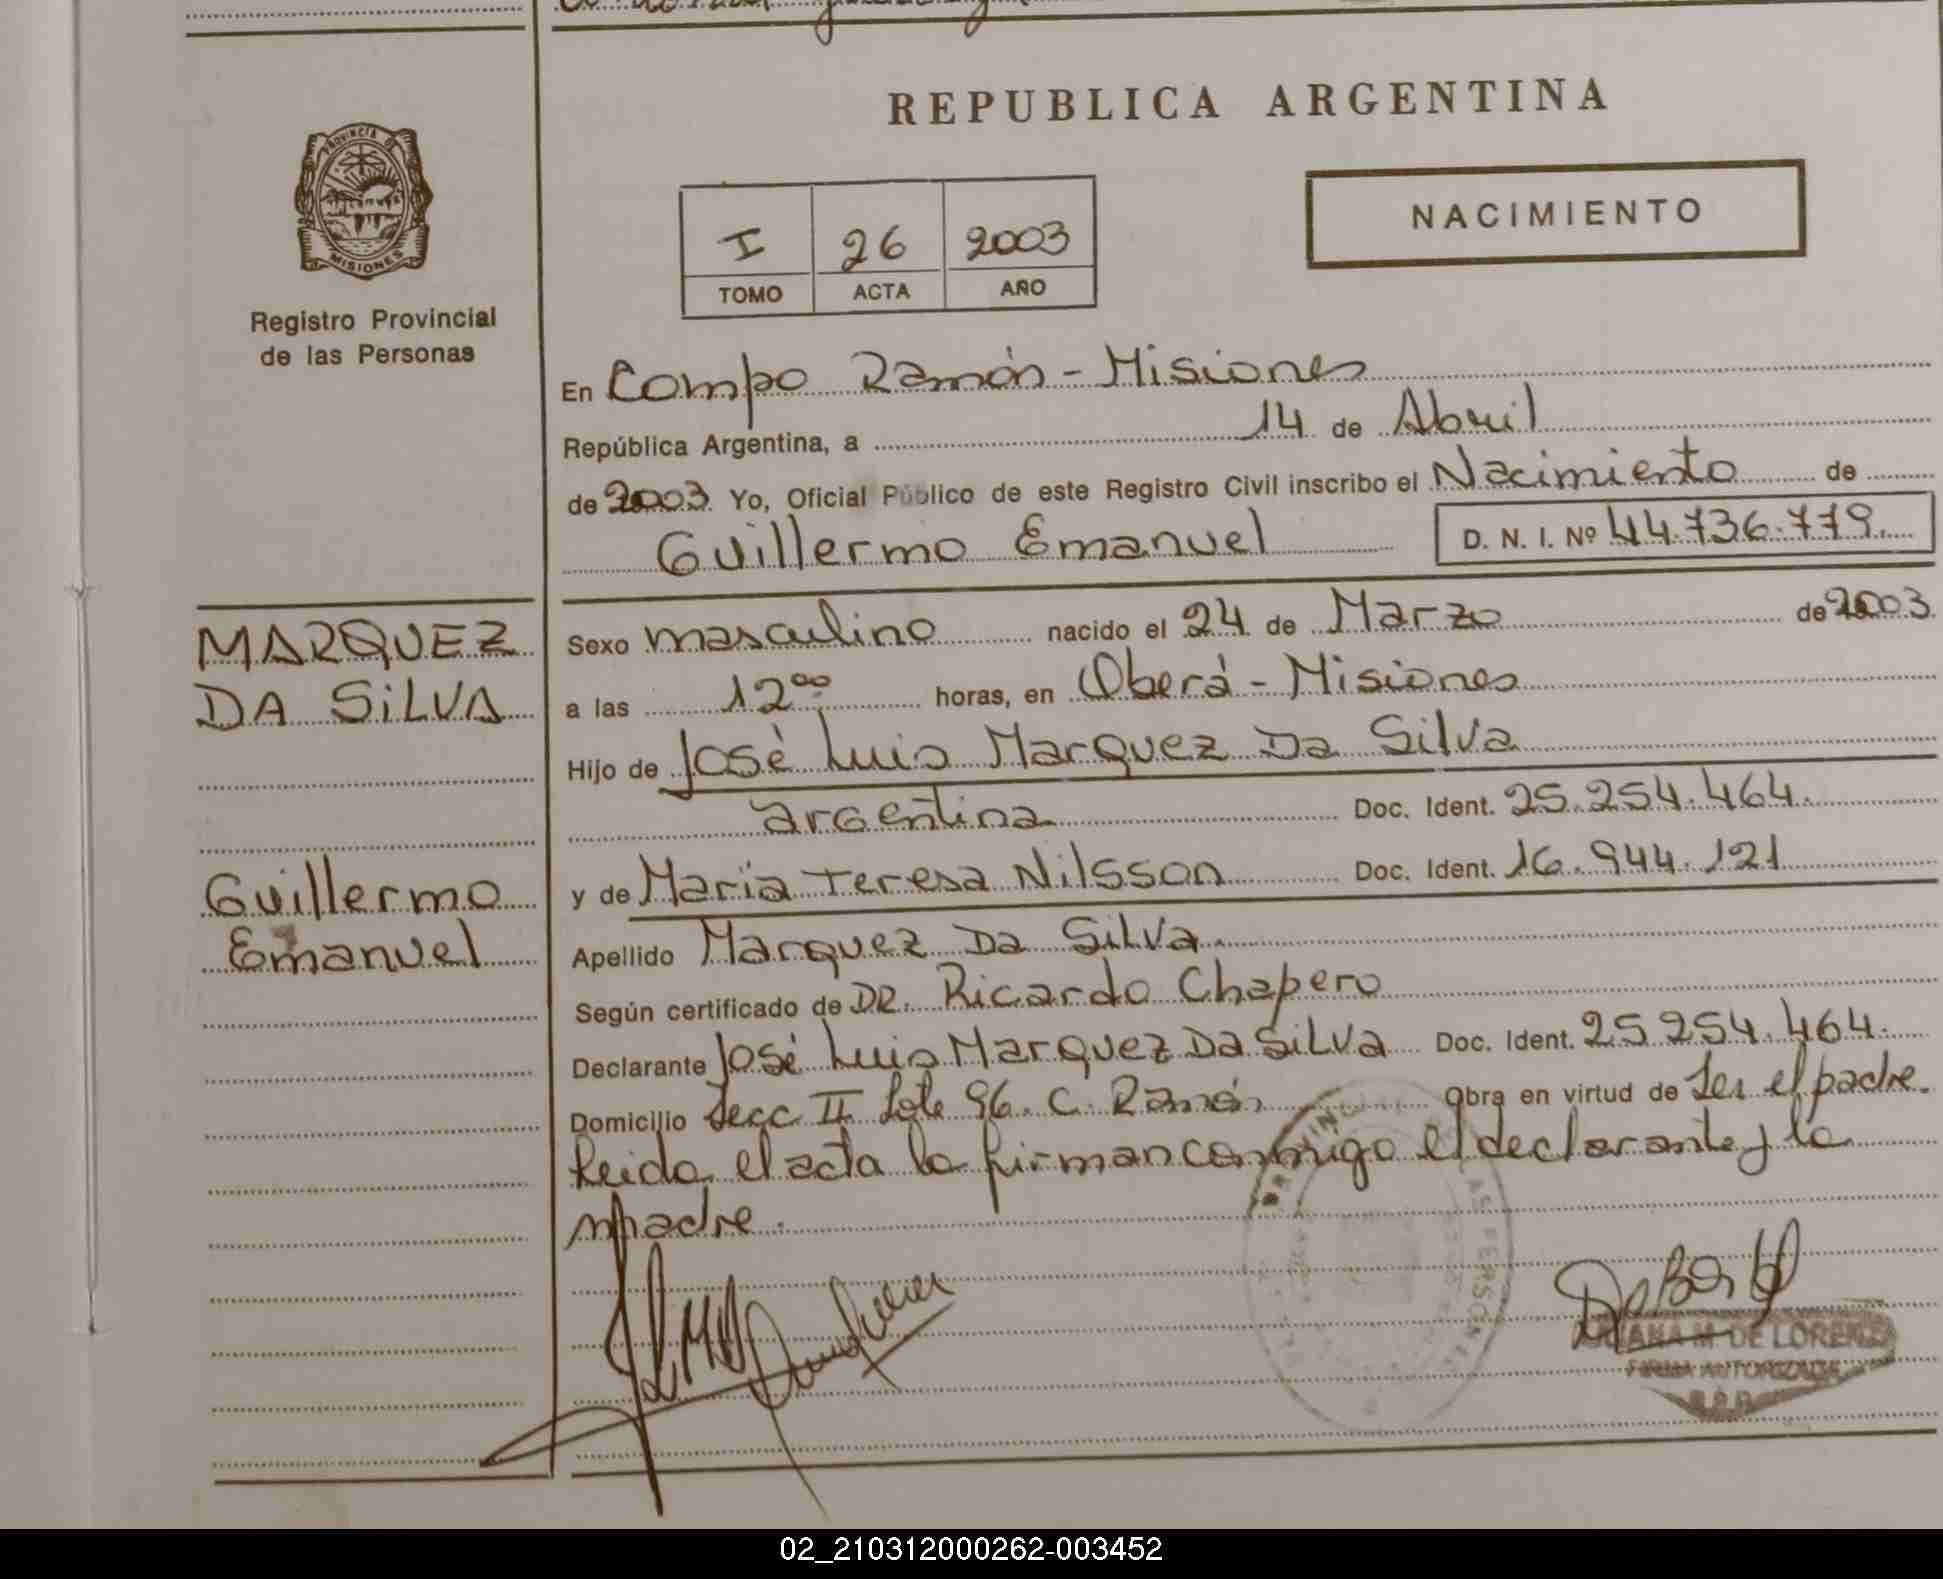 REPUBLICA ARGENTINA
PROVINCIA DE
MISIONES
Registro Provincial
de las Personas
I 26 2003
TOMO ACTA AÑO
NACIMIENTO
En Campo Ramón - Misiones
República Argentina, a 14 de Abril
de 2003 Yo, Oficial Público de este Registro Civil inscribo el Nacimiento de
Guillermo Emanuel D. N. I. Nº 44.736.779.
MARQUEZ
DA SiLVA
Guillermo
Emanuel
Sexo masculino nacido el 24 de Marzo de 2003
a las 12ºº horas, en Oberá - Misiones
Hijo de José Luis Marquez Da Silva
argentina Doc. Ident. 25.254.464.
y de María Teresa Nilsson Doc. Ident. 16.944.121
Apellido Marquez Da Silva.
Según certificado de DR. Ricardo Chapero
Declarante José Luis Marquez Da SiLVA Doc. Ident. 25.254.464.
Domicilio Secc II Lote 96. C. Ramón Obra en virtud de Ser el padre.
Leida el acta la firman conmigo el declarante y la
madre.
DE LORENZ
FIRMA AUTORIZADA
02_210312000262-003452